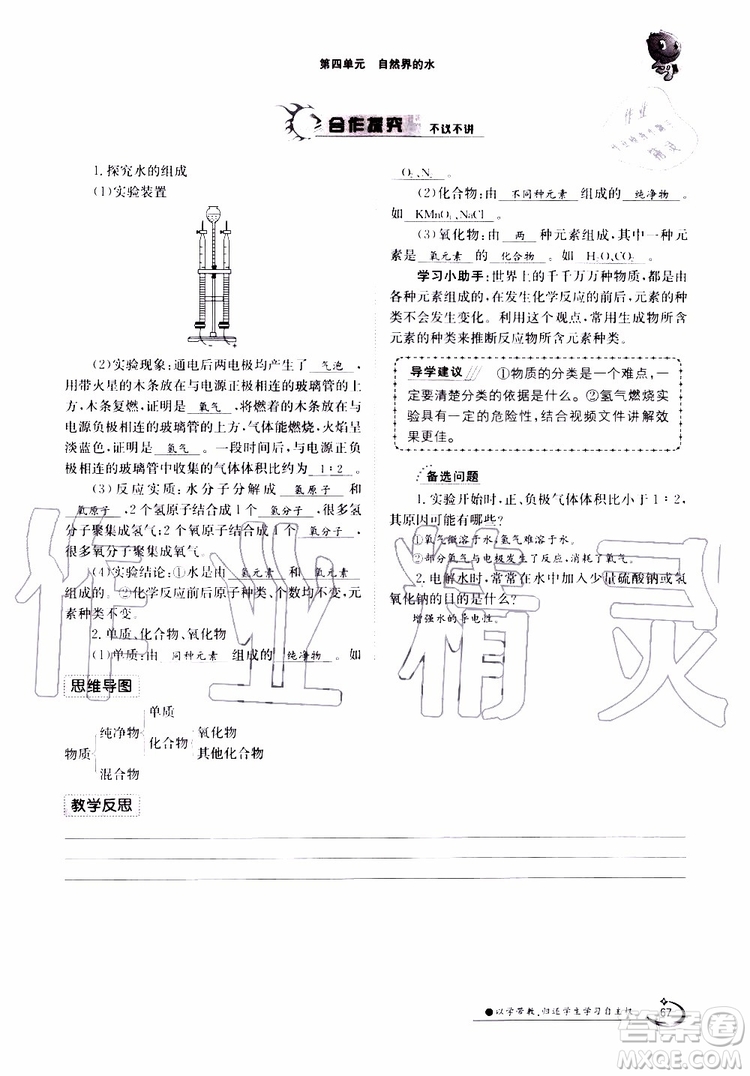 第四单元 自然界的水
合作探究 不议不讲
1.探究水的组成
(1)实验装置
(2)实验现象:通电后两电极均产生了 气泡 ,
用带火星的木条放在与电源正极相连的玻璃管的上
方,木条复燃,证明是 氧气 ,将燃着的木条放在与
电源负极相连的玻璃管上方,气体能燃烧,火焰呈
淡蓝色,证明是 氢气 。一段时间后,与电源正负
极相连的玻璃管中收集的气体体积比约为 1∶2 。
(3)反应实质:水分子分解成 氢原子 和
氧原子 ,2个氢原子结合成1个 氢分子 ,很多氢
分子聚集成氢气;2个氧原子结合成1个 氧分子 ,
很多氧分子聚集成氧气。
(4)实验结论:①水是由 氢元素 和 氧元素
组成的。②化学反应前后原子种类、个数均不变,元
素种类不变。
2.单质、化合物、氧化物
(1)单质:由 同种元素 组成的 纯净物 。如
O₂、N₂ 。
(2)化合物:由 不同种元素 组成的 纯净物 。
如 KMnO₄、NaCl 。
(3)氧化物:由 两 种元素组成,其中一种元
素是 氧元素 的 化合物 。如 H₂O、CO₂ 。
学习小助手:世界上的千千万万种物质,都是由
各种元素组成的,在发生化学反应的前后,元素的种
类不会发生变化。利用这个观点,常用生成物所含
元素的种类来推断反应物所含元素的种类。
导学建议 ①物质的分类是一个难点,一
定要清楚分类的依据是什么。②氢气燃烧实
验具有一定的危险性,结合视频文件讲解效
果更佳。
备选问题
1.实验开始时,正、负极气体体积比小于1∶2,
其原因可能有哪些?
①氧气微溶于水,氢气难溶于水。
②部分氧气与电极发生了反应,消耗了氧气。
2.电解水时,常常在水中加入少量硫酸钠或氢
氧化钠的目的是什么?
增强水的导电性。
思维导图
物质
纯净物
单质
化合物
氧化物
其他化合物
混合物
教学反思
作业精灵
以学带教,归还学生学习自主权
67
答案圈
MXQE.COM